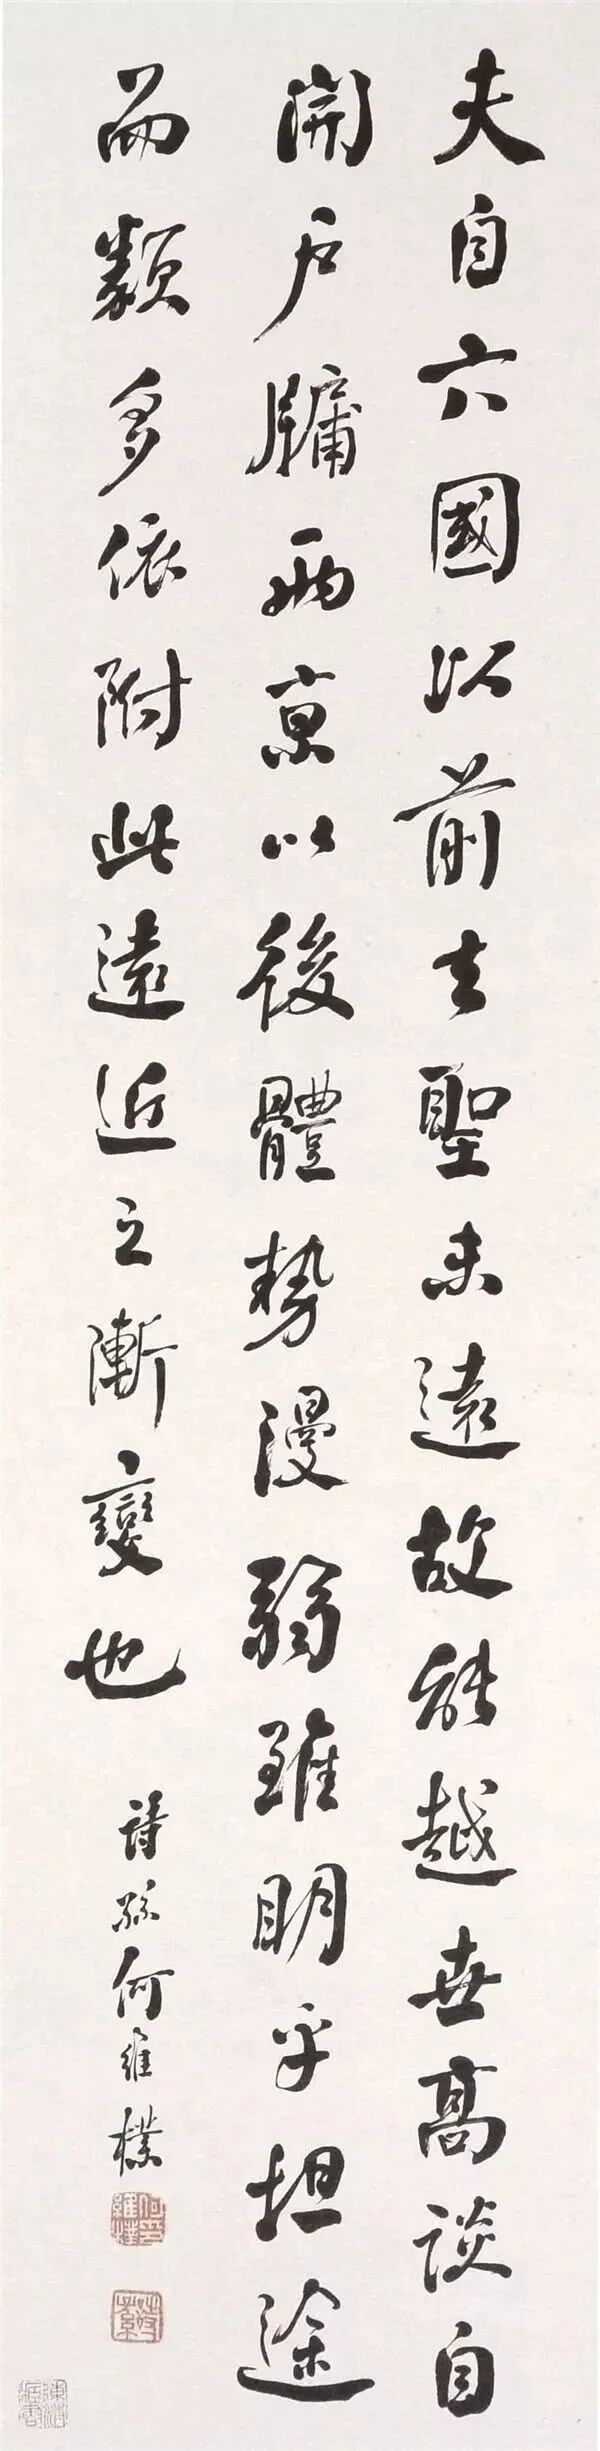 夫自六國以前去聖未遠故能越世高談自
開户牖兩京以後體勢漫弱雖明乎坦途
而類多依附此遠近之漸變也
詩孫何維樸
何印維樸
詩孫